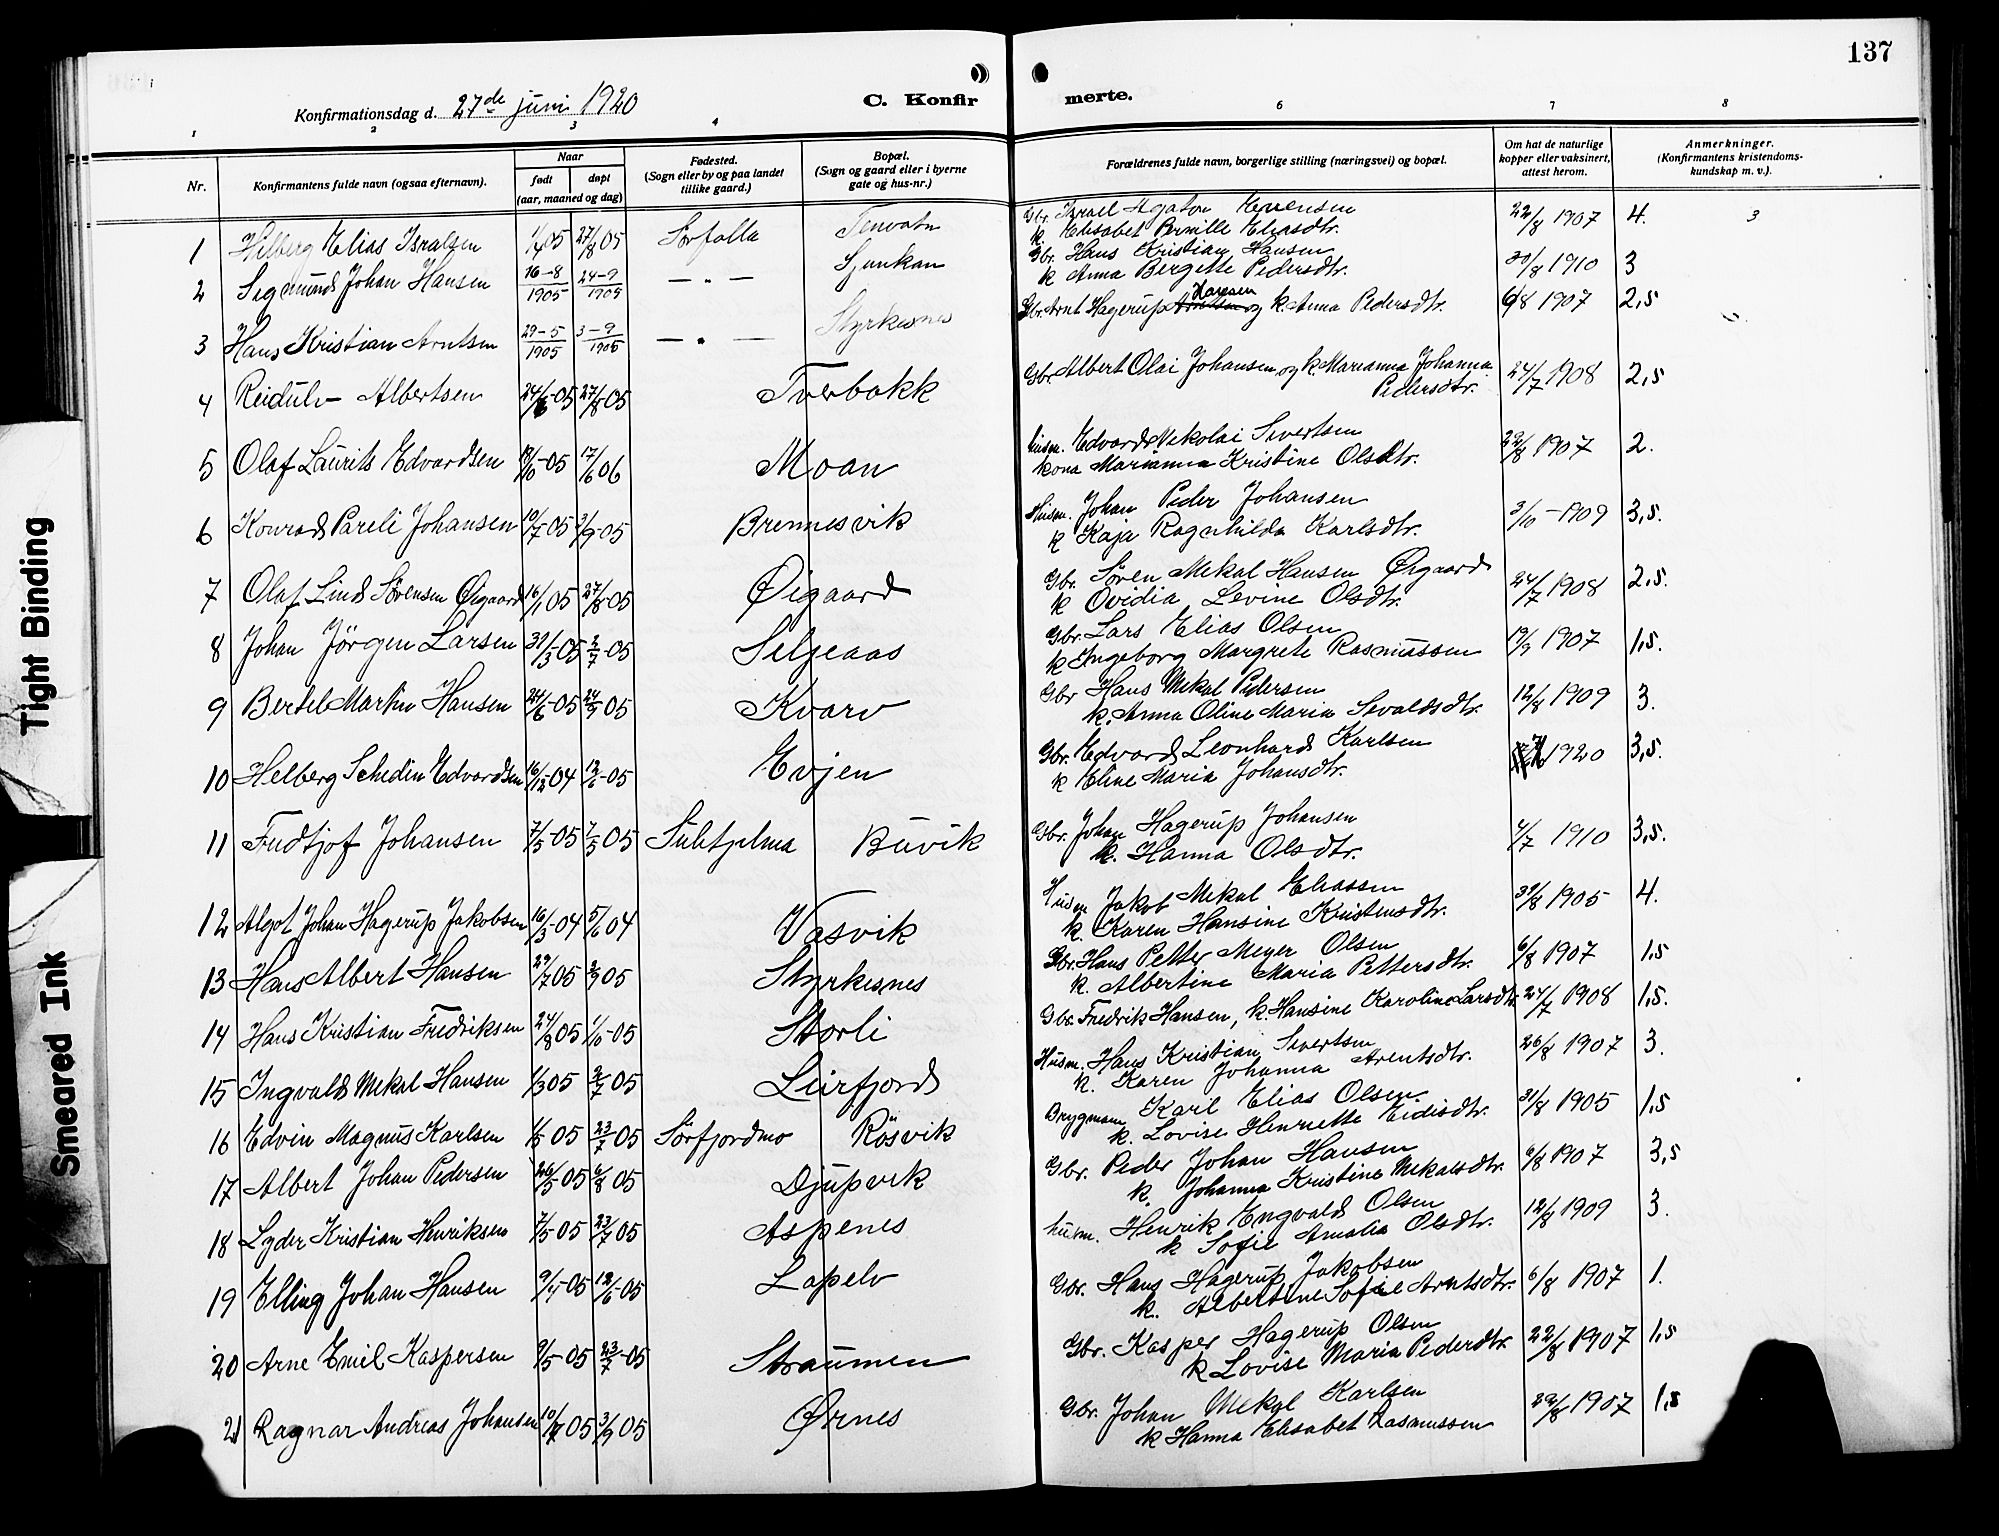 137
Konfirmationsdag d. 27de juni 1920
C. Konfirmerte.
1 2 3 4 6 7 8
Nr.
Konfirmantens fulde navn (ogsaa efternavn).
Naar
født døpt
(aar, maaned og dag)
Fødested.
(Sogn eller by og paa landet
tillike gaard.)
Bopæl.
(Sogn og gaard eller i byerne
gate og hus-nr.)
Forældrenes fulde navn, borgerlige stilling (næringsvei) og bopæl.
Om hat de naturlige
kopper eller vaksinert,
attest herom.
Anmerkninger.
(Konfirmantens kristendoms-
kundskap m. v.).
1 Hilberg Elias Isralsen 05 27/8 05 Sørfolla Tenvatn Gbr. Israel Agaton k. Elisabet Pernille Eliasdtr. 22/8 1907 4. 3
2 Sigmund Johan Hansen 16-8 1905 24-9 1905 — " — Sjunkan Gbr. Hans Kristian Hansen k Anna Bergitte Pedersdtr. 30/8 1910 3
3 Hans Kristian Arntsen 29-5 1905 3-9 1905 — " — Styrkesnes Gbr. Arnt Hagerup Hansen og k. Anna Pedersdtr. 6/8 1907 2,5
4 Reidulv Albertsen 24/6-05 27/8-05 Tverbakk Gbr. Albert Olai Johansen og k. Marianna Johanna Pedersdtr. 24/7 1908 2,5
5 Olaf Laurits Edvardsen /10-05 17/6 06 Moan Husm. Edvard Nikolai Sivertsen kona Marianna Kristine Olsdtr. 22/8 1907 2.
6 Konrad Pareli Johansen 10/7-05 3/9-05 Brennesvik Husm. Johan Peder Johansen k Kaja Ragnhilda Karlsdtr. 3/10-1909 3,5.
7 Olaf Lind Sørensen Øigaard 16/1 05 27/8-05 Øigaard Gbr. Søren Mekal Hansen Øigaard k Ovidia Levine Olsdtr. 24/7 1908 2,5.
8 Johan Jörgen Larsen 31/3-05 2/7-05 Seljeaas Gbr. Lars Elias Olsen k Ingeborg Margrete Rasmussen 19/9 1907 1,5.
9 Bertel Martin Hansen 24/6-05 24/9 05 Kvarv Gbr Hans Mekal Pedersen k. Anna Oline Maria Sevaldsdtr. 12/8 1909 3.
10 Helberg Schedin Edvardsen 16/12-04 12/6-05 Evjen Gbr. Edvard Leonhard Karlsen k Eline Maria Johansdtr. 1920 3,5.
11 Fridtjof Johansen 7/5-05 7/5 05 Sulitjelma Buvik Gbr. Johan Hagerup Johansen k. Hanna Olsdtr. 4/7 1910 3,5.
12 Algot Johan Hagerup Jakobsen 16/3-04 5/6 04 Vasvik Husm Jakob Mekal Eliassen k. Karen Hansine Kristensdtr. 31/8 1905 4.
13 Hans Albert Hansen 29/7 05 3/9 05 Styrkesnes Gbr. Hans Petter Meyer Olsen k. Albertine Maria Pettersdtr. 6/8 1907 1,5
14 Hans Kristian Fredriksen 24/8 05 1/10-05 Storli Gbr. Fredrik Hansen, k. Hansine Karoline Larsdtr. 24/7 1908 1,5.
15 Ingvald Mekal Hansen 1/3 05 2/7 05 Leirfjord Husm. Hans Kristian Sivertsen k. Karen Johanna Arentsdtr. 26/8 1907 3.
16 Edvin Magnus Karlsen 1/5 05 23/7 05 Sörfjordmo Rösvik Brygmann Karl Elias Olsen k. Lovise Henriette Eidisdtr. 31/8 1905 1,5
17 Albert Johan Pedersen 26/5 05 6/8 05 Djupvik Gbr. Peder Johan Hansen k. Johanna Kristine Mekalsdtr. 6/8 1907 3,5
18 Lyder Kristian Henriksen 7/5-05 23/7 05 Aspenes husm. Henrik Engvald Olsen k Sofie Amalia Olsdtr. 12/8 1909 3.
19 Elling Johan Hansen 9/4-05 12/6-05 Lapelv Gbr. Hans Hagerup Jakobsen k. Albertine Sofie Arntsdtr. 6/8 1907 1.
20 Arne Emil Kaspersen 9/5-05 23/7-05 Straumen Gbr. Kasper Hagerup Olsen k Lovise Maria Pedersdtr. 22/8 1907 1,5
21 Ragnar Andreas Johansen 10/7 05 3/9 05 Ørnes Gbr. Johan Mekal Karlsen k Hanna Elisabet Rasmussen 22/8 1907 1,5
Tight Binding
Smeared Ink